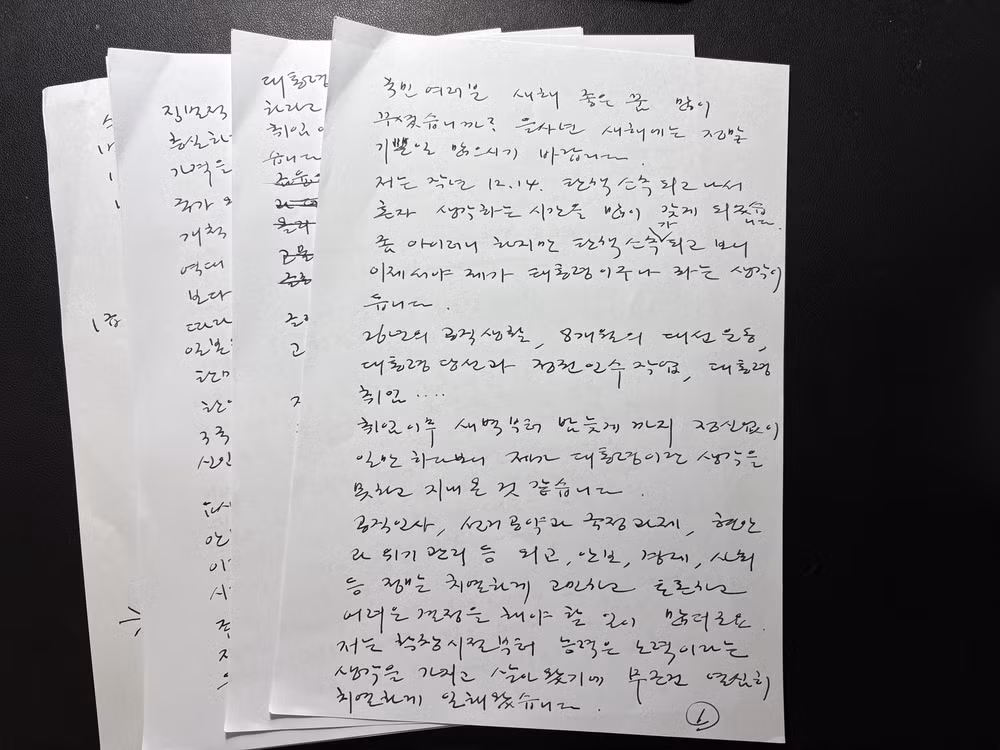 국민 여러분 새해 좋은 꿈 많이
꾸셨습니까? 을사년 새해에는 정말
기쁜일 많으시기 바랍니다.
저는 작년 12.14. 탄핵 소추 되고 나서
혼자 생각하는 시간을 많이 갖게 되었습니다.
좀 아이러니 하지만 탄핵 소추가 되고 보니
이제서야 제가 대통령이구나 하는 생각이
듭니다.
26년의 공직생활, 8개월의 대선 운동,
대통령 당선과 정권 인수 작업, 대통령
취임....
취임이후 새벽부터 밤늦게 까지 정신없이
일만 하다보니 제가 대통령이란 생각을
못하고 지내온 것 같습니다.
공직인사, 선거공약과 국정과제, 현안
과 위기 관리 등 외교, 안보, 경제, 사회
등 정말 치열하게 고민하고 토론하고
어려운 결정을 해야 할 일이 많더군요.
저는 학창시절부터 능력은 노력이라는
생각을 가지고 살아왔기에 무조건 열심히
치열하게 일해왔습니다.
1
대통령
하라고
취임
습니다
고
직무적
충실하
가격은
국가
개척
역대
보다
따라
일본
한미
3국
안
이